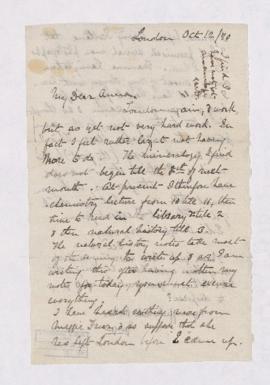 London Oct. 12/80
My Dear
London again, & work
but as yet not very hard work. In
fact I feel rather bright not having
more to do. The mineralogy I find
does not begin till the 8th of next
month. At present I therefore have
chemistry lecture from 10 till 11, then
time to read in library till 2
& then natural history till 3.
The natural history notes take most
of the evening to write up & as I am
writing this after having written my
notes for today you must excuse
everything.
I have heard nothing more from
Maggie & so suppose that she
has left London before I came up.